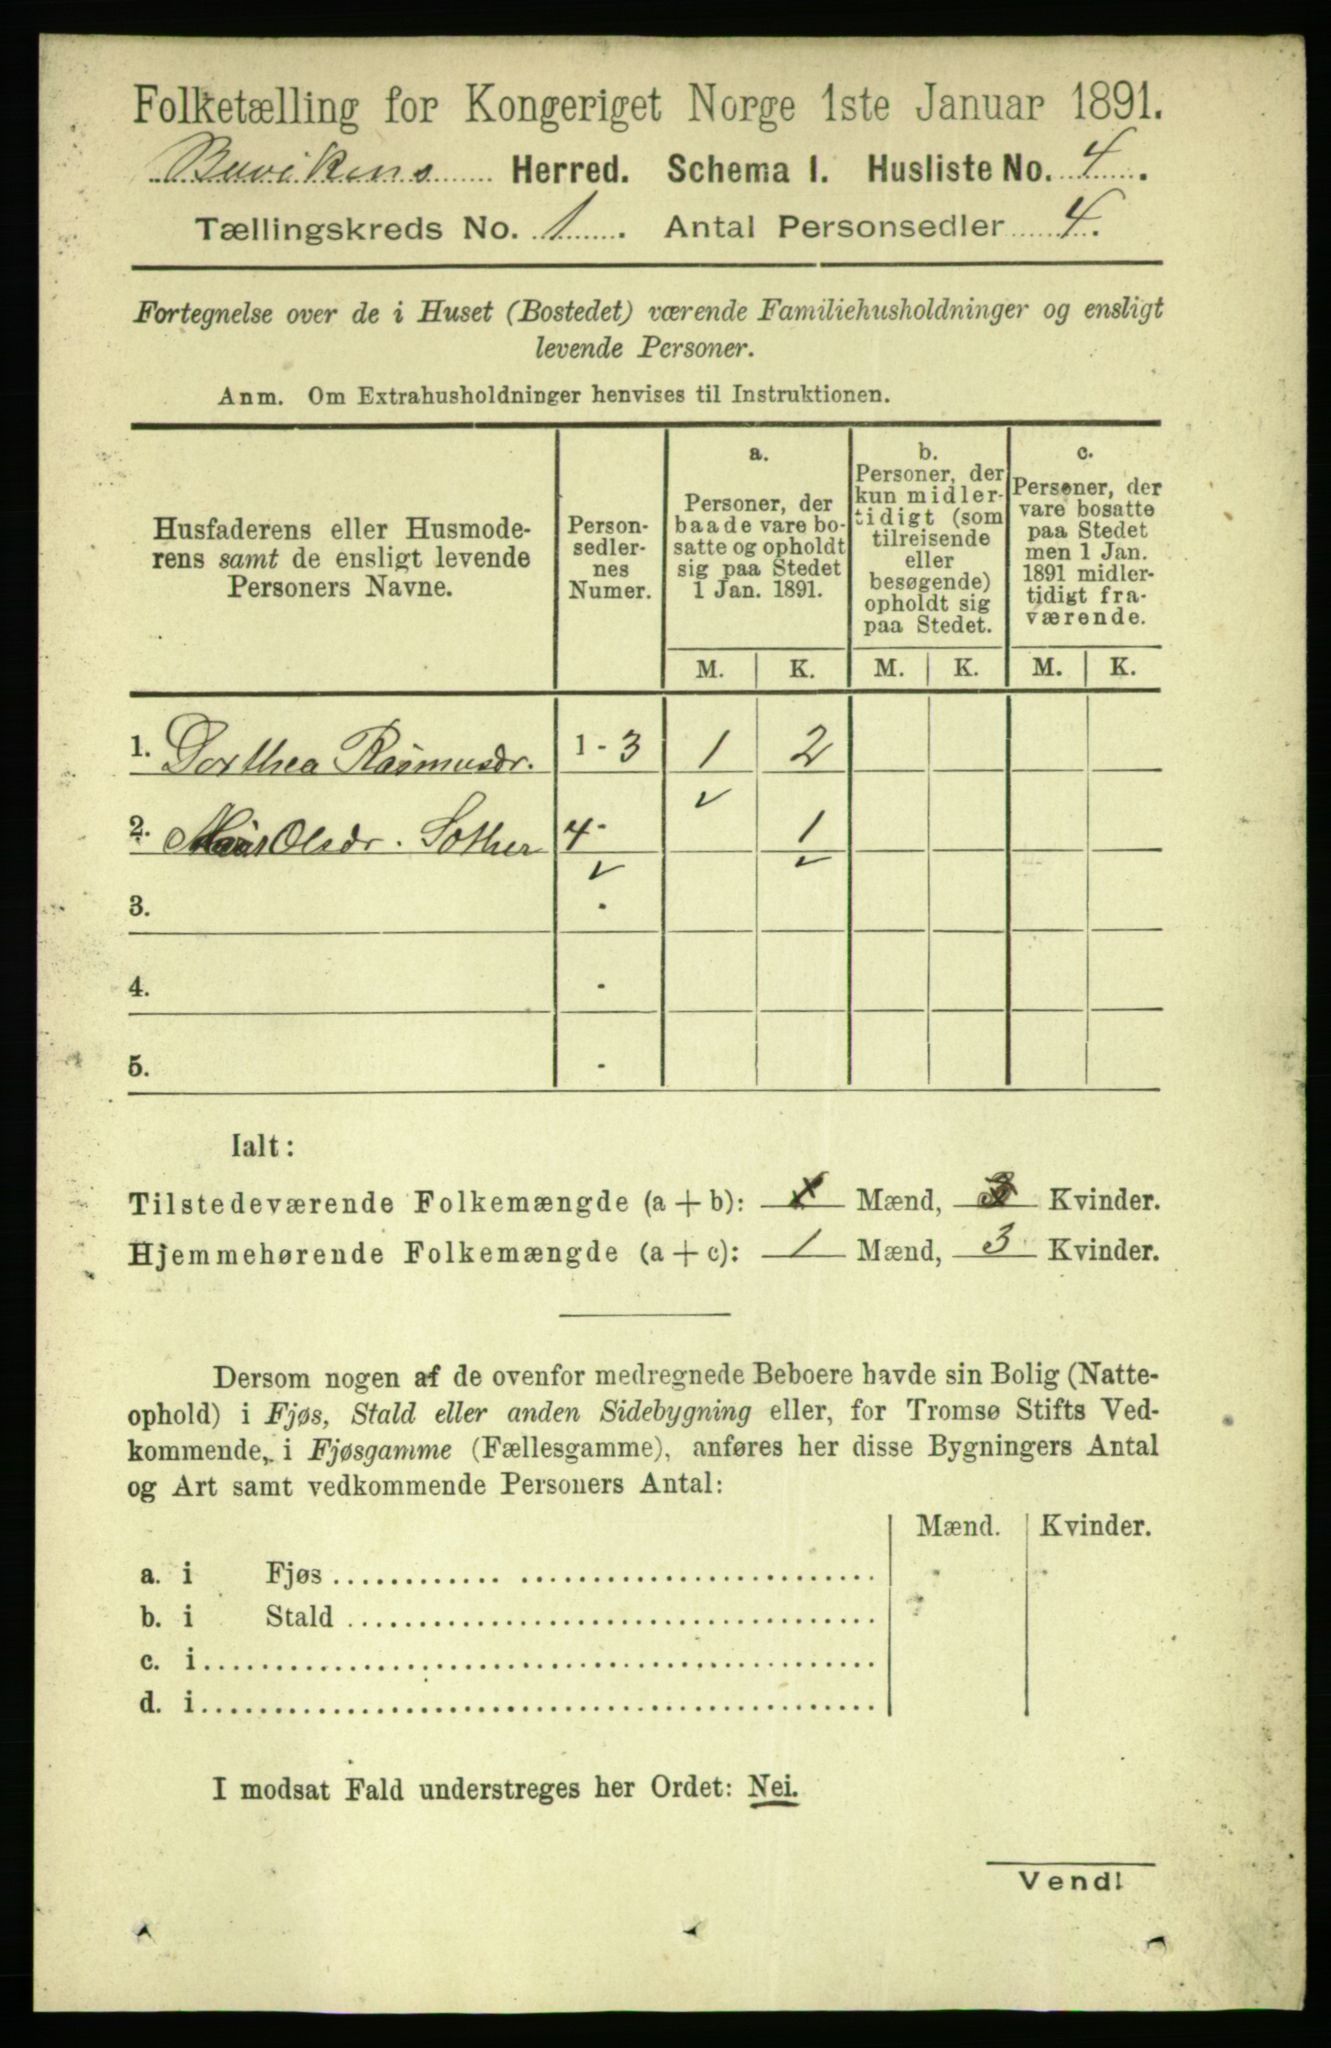 Folketælling for Kongeriget Norge 1ste Januar 1891.
Buvikens Herred. Schema I. Husliste No. 4.
Tællingskreds No. 1. Antal Personsedler 4.
Fortegnelse over de i Huset (Bostedet) værende Familiehusholdninger og ensligt
levende Personer.
Anm. Om Extrahusholdninger henvises til Instruktionen.
Husfaderens eller Husmode-
rens samt de ensligt levende
Personers Navne.
Person-
sedler-
nes
Numer.
a.
Personer, der
baade vare bo-
satte og opholdt
sig paa Stedet
1 Jan. 1891.
b.
Personer, der
kun midler-
tidigt (som
tilreisende
eller
besøgende)
opholdt sig
paa Stedet.
c.
Personer, der
vare bosatte
paa Stedet
men 1 Jan.
1891 midler-
tidigt fra-
værende.
M. K. M. K. M. K.
1. Dorthea Rasmusdr. 1-3 1 2
2. Olsdr. Sother 4- 1
3. -
4. -
5. -
Ialt:
Tilstedeværende Folkemængde (a + b): Mænd, Kvinder.
Hjemmehørende Folkemængde (a + c): 1 Mænd, 3 Kvinder.
Dersom nogen af de ovenfor medregnede Beboere havde sin Bolig (Natte-
ophold) i Fjøs, Stald eller anden Sidebygning eller, for Tromsø Stifts Ved-
kommende, i Fjøsgamme (Fællesgamme), anføres her disse Bygningers Antal
og Art samt vedkommende Personers Antal:
Mænd. Kvinder.
a. i Fjøs
b. i Stald
c. i
d. i
I modsat Fald understreges her Ordet: Nei.
Vend!